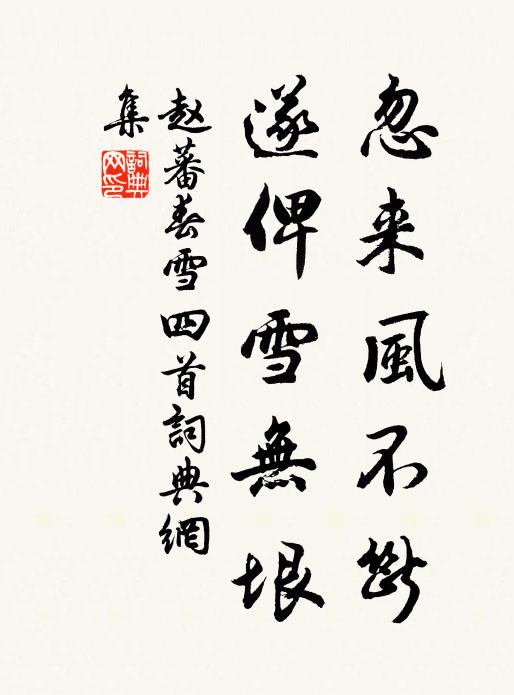 忽来風不断
遂俾雪無垠
赵蕃春雪四首詞典網
集
詞典网印